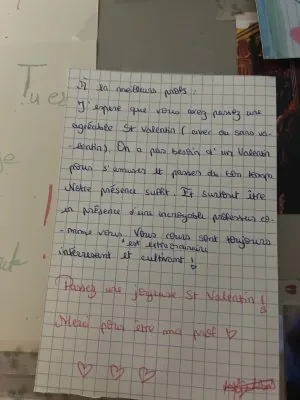 Tu es
À la meilleure profs :
J'espère que vous avez passez une
agréable St Valentin (avec ou sans va-
-lentin). On a pas besoin d'un Valentin
pour s'amuser et passer du bon temps
Notre présence suffit. Et surtout être
en présence d'une incroyable professeur co-
-mme vous. Vous cours sont toujours
est extraordinaire
intéressent et cultivant !
Passez une joyeuse St Valentin !
Merci pour être ma prof ♡
♡ ♡ ♡